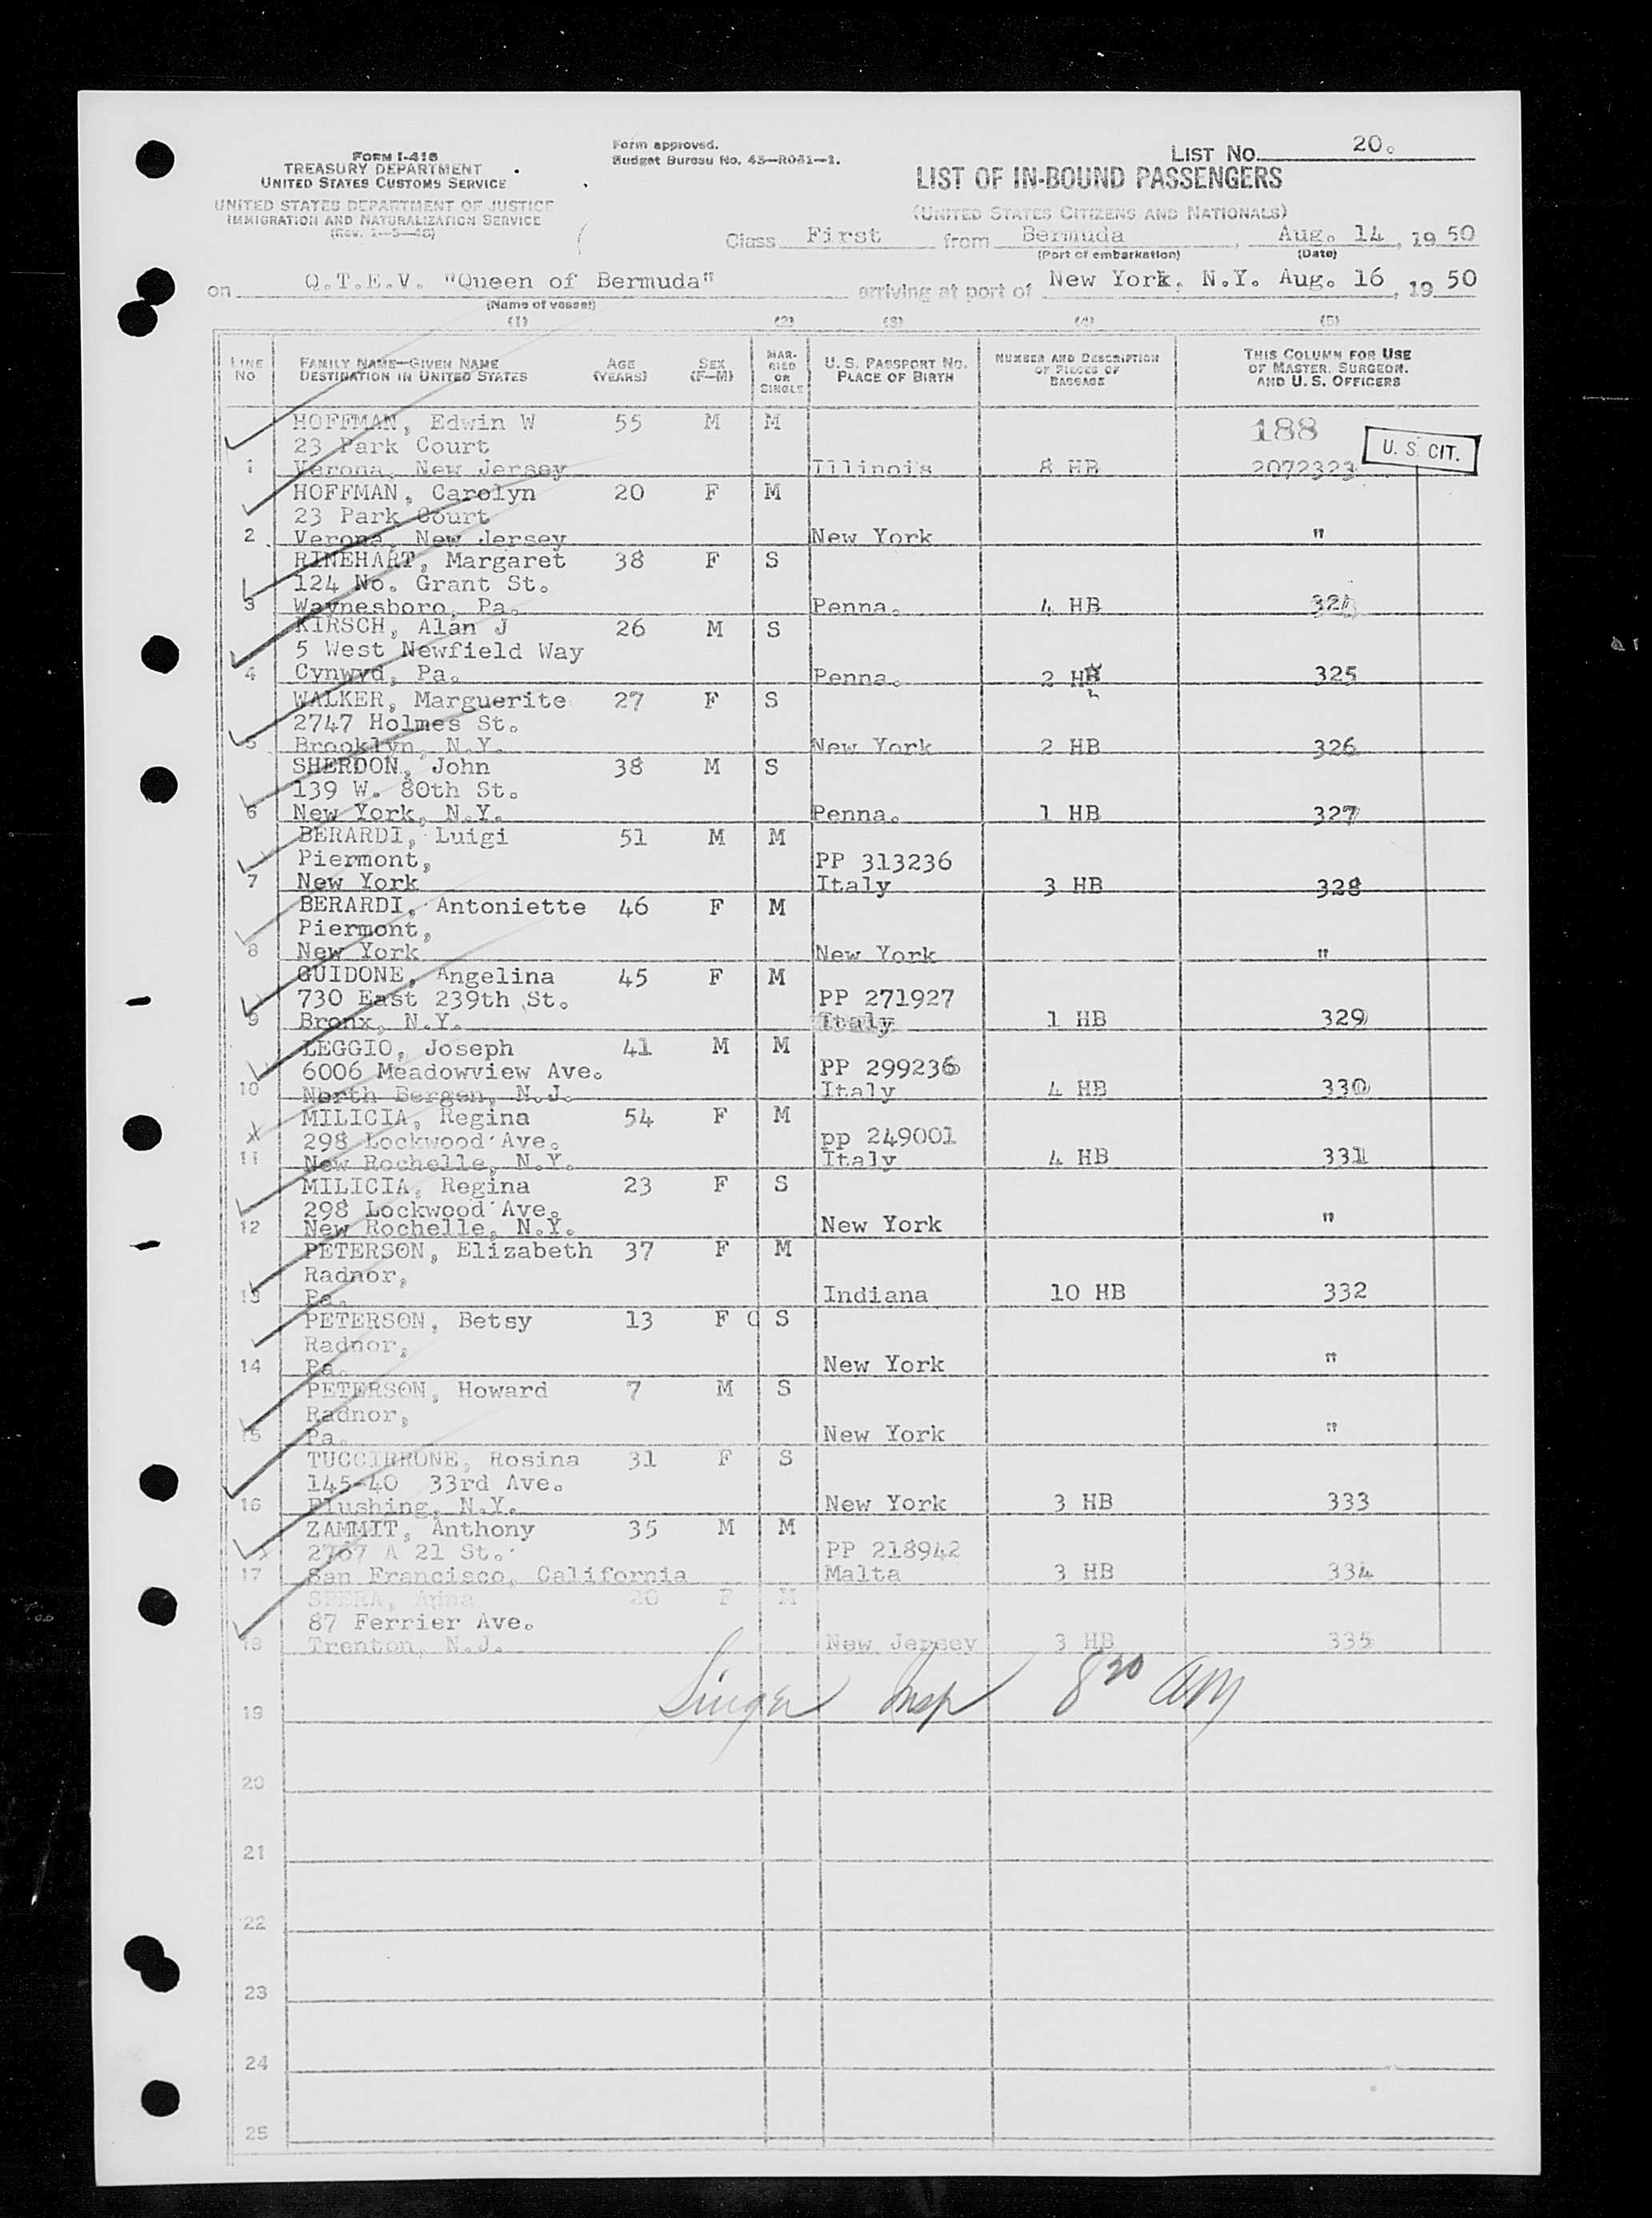 FORM I-418
TREASURY DEPARTMENT
UNITED STATES CUSTOMS SERVICE
UNITED STATES DEPARTMENT OF JUSTICE
IMMIGRATION AND NATURALIZATION SERVICE
Form approved.
Budget Bureau No. 43—R041—1.
LIST NO. 20.
LIST OF IN-BOUND PASSENGERS
(UNITED STATES CITIZENS AND NATIONALS)
Class First from Bermuda, Aug. 14, 19 50
(Port of embarkation) (Date)
on Q.T.E.V. "Queen of Bermuda" arriving at port of New York, N.Y. Aug. 16, 19 50
(Name of vessel)
(1) (2) (3) (4) (5)
LINE NO FAMILY NAME—GIVEN NAME DESTINATION IN UNITED STATES AGE (YEARS) SEX (F—M) MARRIED OR SINGLE U. S. PASSPORT NO. PLACE OF BIRTH NUMBER AND DESCRIPTION OF PIECES OF BAGGAGE THIS COLUMN FOR USE OF MASTER, SURGEON, AND U. S. OFFICERS
HOFFMAN, Edwin W 55 M M 188
23 Park Court U. S. CIT.
1 Verona, New Jersey Illinois 8 HB 2072323
HOFFMAN, Carolyn 20 F M
23 Park Court
2 Verona, New Jersey New York "
RINEHART, Margaret 38 F S
124 No. Grant St.
3 Waynesboro, Pa. Penna. 4 HB 324
KIRSCH, Alan J 26 M S
5 West Newfield Way
4 Cynwyd, Pa. Penna. 2 HB 325
WALKER, Marguerite 27 F S
2747 Holmes St.
5 Brooklyn, N.Y. New York 2 HB 326
SHERDON, John 38 M S
139 W. 80th St.
6 New York, N.Y. Penna. 1 HB 327
BERARDI, Luigi 51 M M
Piermont, PP 313236
7 New York Italy 3 HB 328
BERARDI, Antoniette 46 F M
Piermont,
8 New York New York "
GUIDONE, Angelina 45 F M
730 East 239th St. PP 271927
9 Bronx, N.Y. Italy 1 HB 329
LEGGIO, Joseph 41 M M
6006 Meadowview Ave. PP 299236
10 North Bergen, N.J. Italy 4 HB 330
MILICIA, Regina 54 F M
298 Lockwood Ave. pp 249001
11 New Rochelle, N.Y. Italy 4 HB 331
MILICIA, Regina 23 F S
298 Lockwood Ave.
12 New Rochelle, N.Y. New York "
PETERSON, Elizabeth 37 F M
Radnor,
13 Pa. Indiana 10 HB 332
PETERSON, Betsy 13 F S
Radnor,
14 Pa. New York "
PETERSON, Howard 7 M S
Radnor,
15 Pa. New York "
TUCCIRRONE, Rosina 31 F S
145-40 33rd Ave.
16 Flushing, N.Y. New York 3 HB 333
ZAMMIT, Anthony 35 M M
2767 A 21 St. PP 218942
17 San Francisco, California Malta 3 HB 334
SPERA, Anna 20 F M
87 Ferrier Ave.
18 Trenton, N.J. New Jersey 3 HB 335
19 Singer Insp 8 20 AM
20
21
22
23
24
25